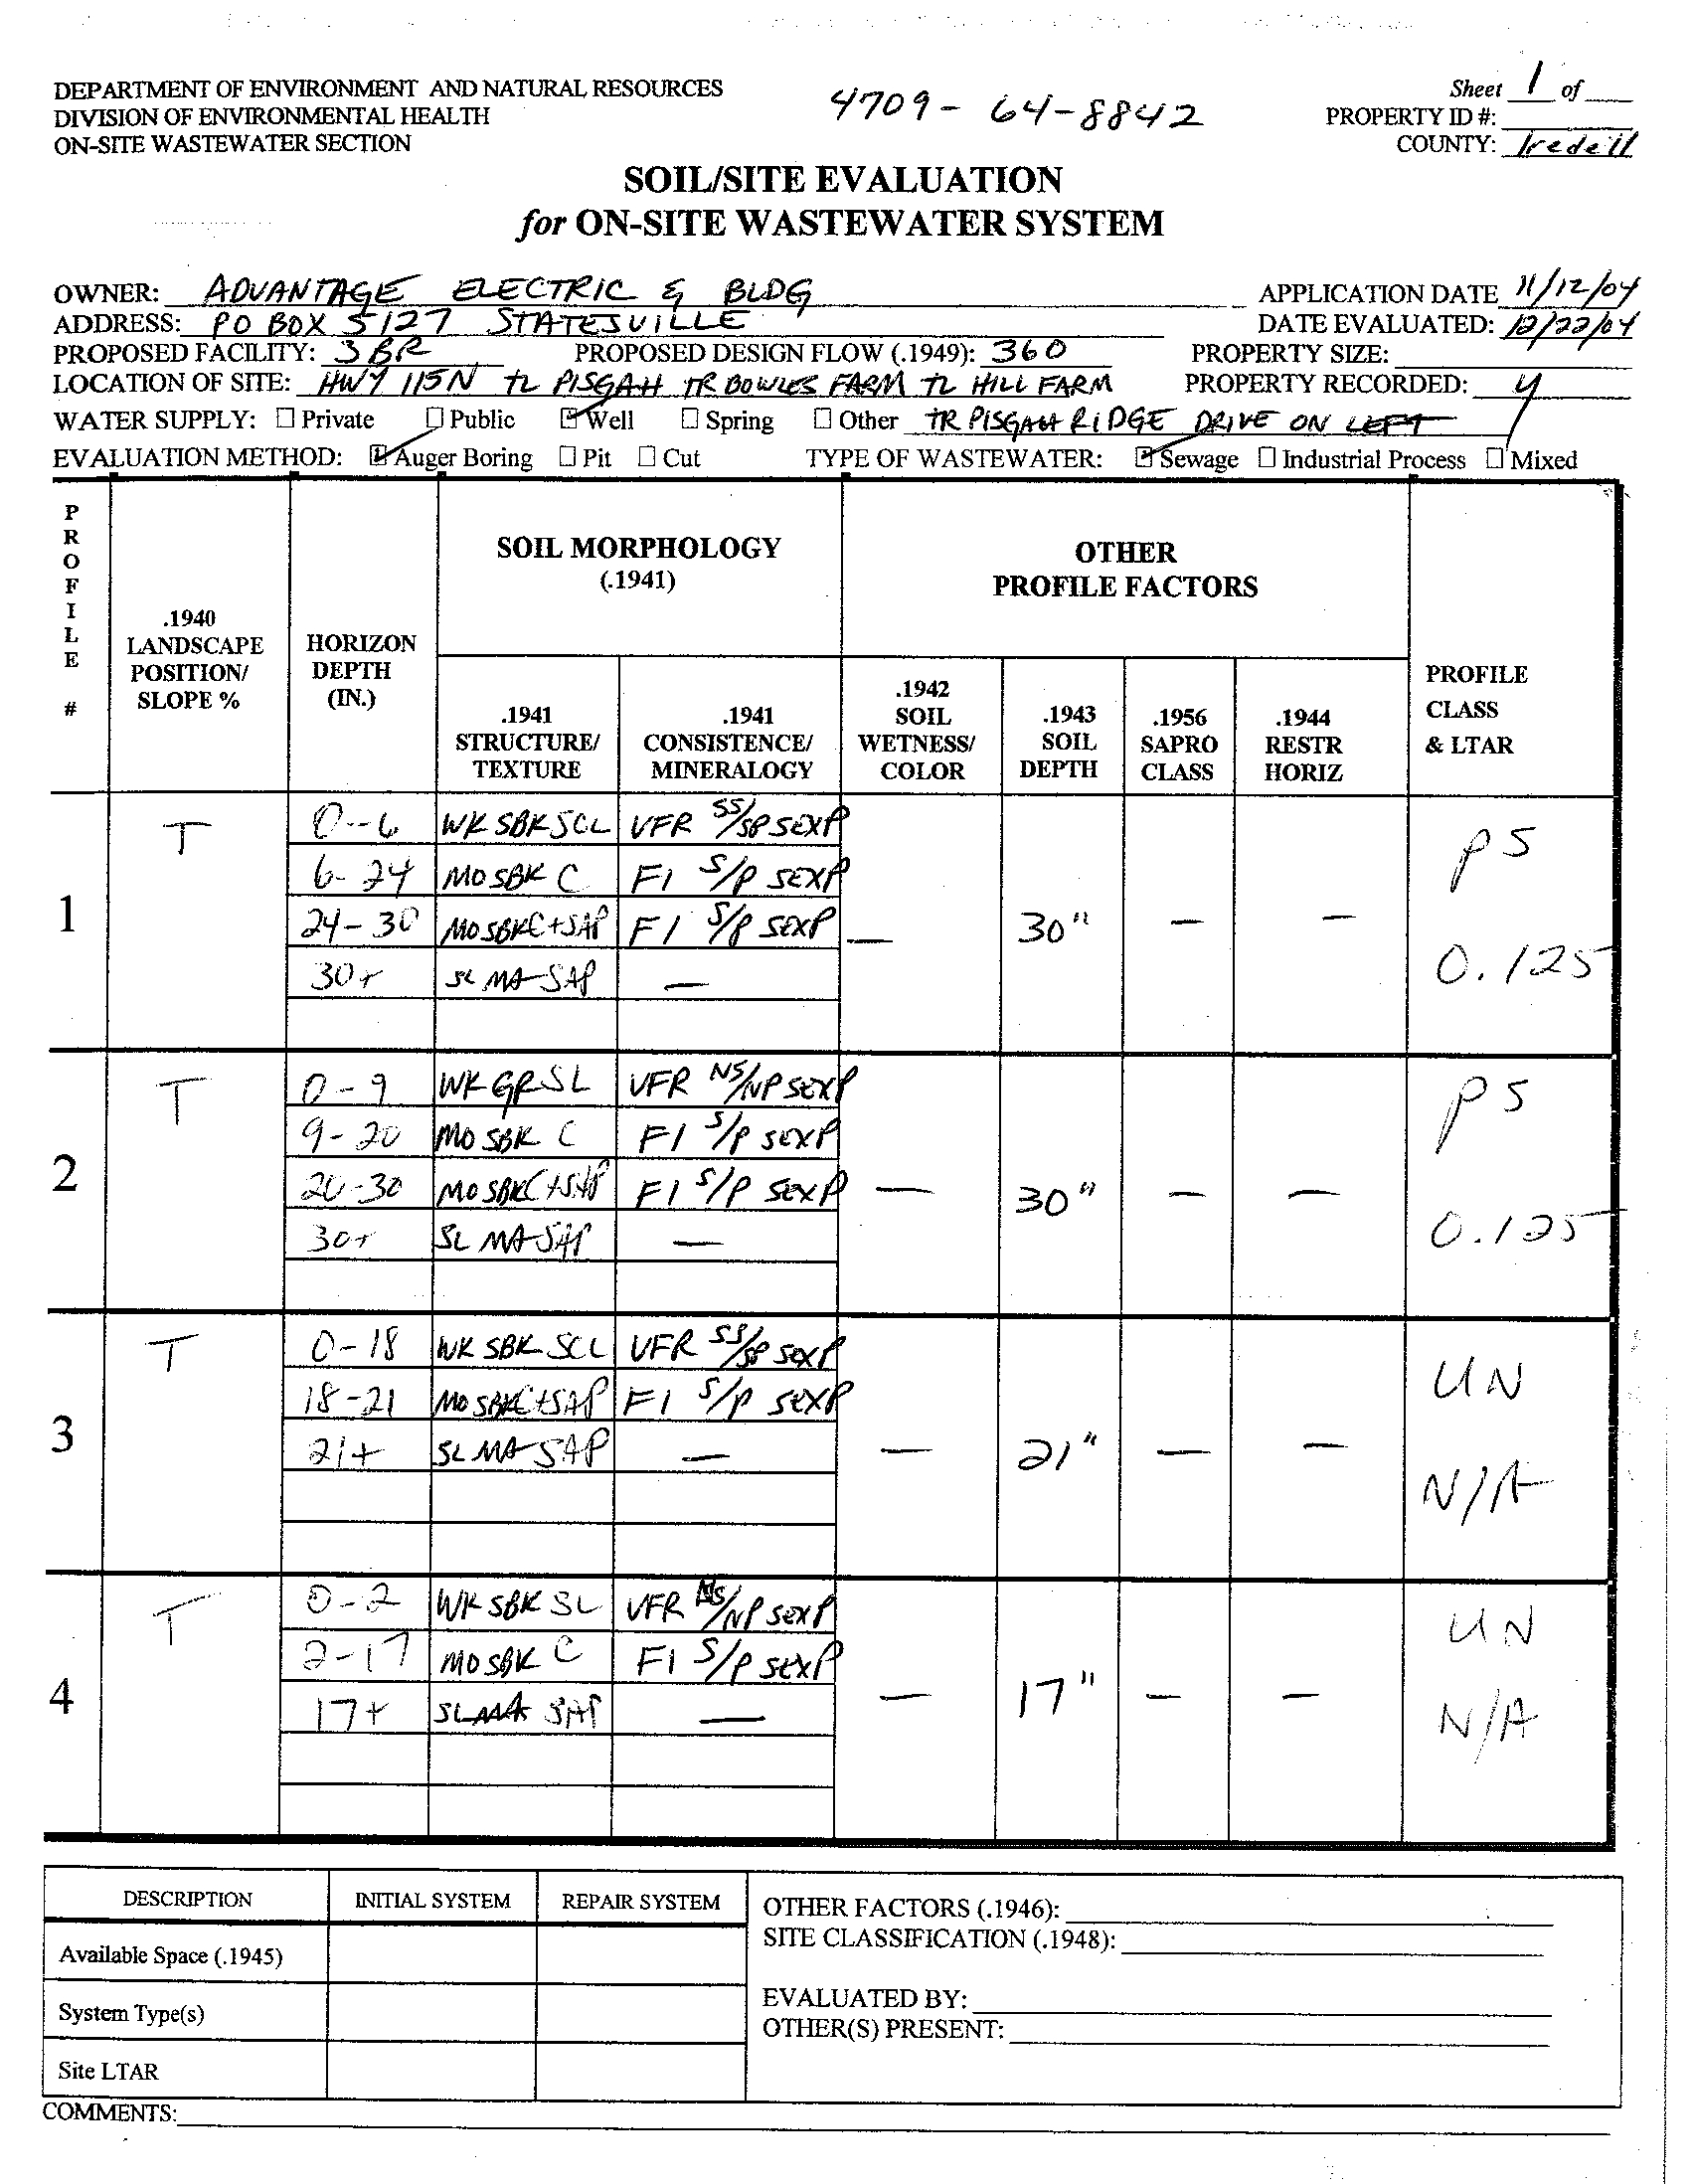 DEPARTMENT OF ENVIRONMENT AND NATURAL RESOURCES
DIVISION OF ENVIRONMENTAL HEALTH
ON-SITE WASTEWATER SECTION
4709-64-8842
Sheet 1 of
PROPERTY ID #:
COUNTY: Iredell
SOIL/SITE EVALUATION
for ON-SITE WASTEWATER SYSTEM
OWNER: ADVANTAGE ELECTRIC & BLDG APPLICATION DATE 11/12/04
ADDRESS: PO BOX 5127 STATESVILLE DATE EVALUATED: 12/22/04
PROPOSED FACILITY: 3 BR PROPOSED DESIGN FLOW (.1949): 360 PROPERTY SIZE:
LOCATION OF SITE: HWY 115N TL PISGAH TR BOWLES FARM TL HILL FARM PROPERTY RECORDED: Y
WATER SUPPLY: Private Public Well Spring Other TR PISGAH RIDGE DRIVE ON LEFT
EVALUATION METHOD: Auger Boring Pit Cut TYPE OF WASTEWATER: Sewage Industrial Process Mixed
PROFILE #
.1940 LANDSCAPE POSITION/ SLOPE %
HORIZON DEPTH (IN.)
SOIL MORPHOLOGY (.1941)
.1941 STRUCTURE/ TEXTURE
.1941 CONSISTENCE/ MINERALOGY
OTHER PROFILE FACTORS
.1942 SOIL WETNESS/ COLOR
.1943 SOIL DEPTH
.1956 SAPRO CLASS
.1944 RESTR HORIZ
PROFILE CLASS & LTAR
1 T — 30" — — PS 0.125
0-6 WK SBK SCL VFR SS/SP SEXP
6-24 MO SBK C FI S/P SEXP
24-30 MO SBK C+SAP FI S/P SEXP
30+ SL MA SAP —
2 T — 30" — — PS 0.125
0-9 WK GR SL VFR NS/NP SEXP
9-20 MO SBK C FI S/P SEXP
20-30 MO SBK C+SAP FI S/P SEXP
30+ SL MA SAP —
3 T — 21" — — UN N/A
0-18 WK SBK SCL VFR SS/SP SEXP
18-21 MO SBK C+SAP FI S/P SEXP
21+ SL MA SAP —
4 T — 17" — — UN N/A
0-2 WK SBK SL VFR NS/NP SEXP
2-17 MO SBK C FI S/P SEXP
17+ SL MA SAP —
DESCRIPTION INITIAL SYSTEM REPAIR SYSTEM
Available Space (.1945)
System Type(s)
Site LTAR
OTHER FACTORS (.1946):
SITE CLASSIFICATION (.1948):
EVALUATED BY:
OTHER(S) PRESENT:
COMMENTS: